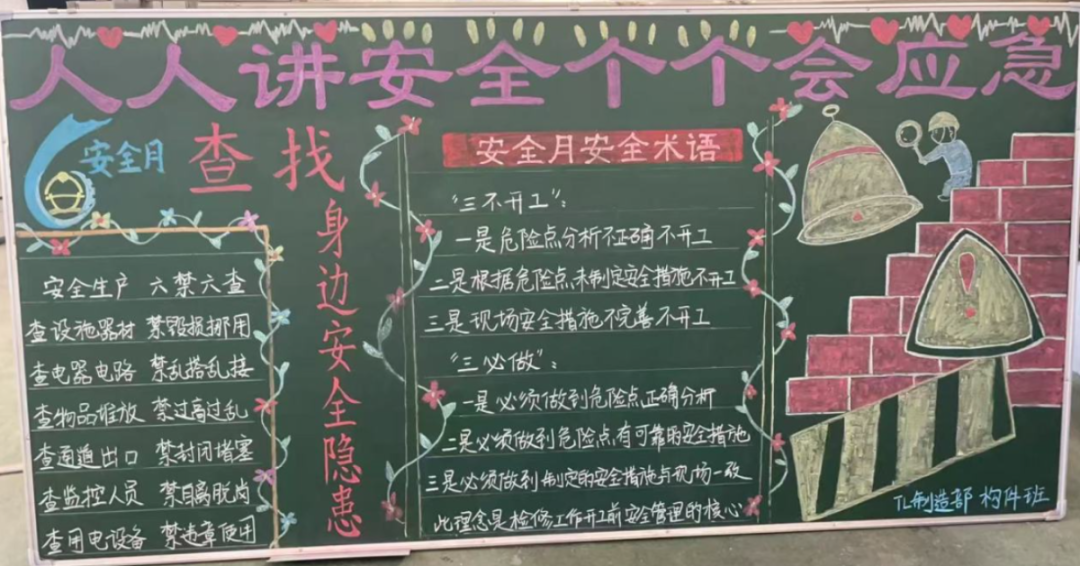 人人讲安全个个会应急
安全月
查找
身边安全隐患
安全生产 六禁六查
查设施器材 禁毁损挪用
查电器电路 禁乱搭乱接
查物品堆放 禁过高过乱
查通道出口 禁封闭堵塞
查监控人员 禁自离脱岗
查用电设备 禁违章使用
安全月安全术语
“三不开工”:
一是危险点分析不正确不开工
二是根据危险点未制定安全措施不开工
三是现场安全措施不完善不开工
“三必做”:
一是必须做到危险点正确分析
二是必须做到危险点有可靠的安全措施
三是必须做到制定的安全措施与现场一致
此理念是检修工作开工前安全管理的核心
TL制造部 构件班